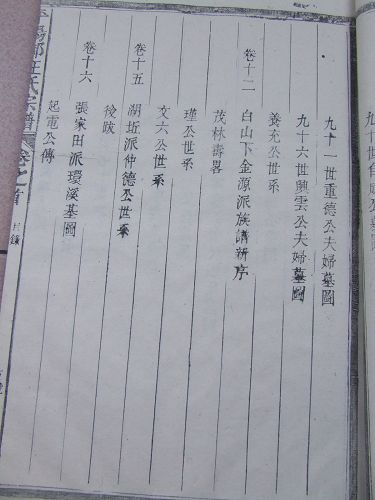 九十一世重德公夫婦墓圖
九十六世興雲公夫婦墓圖
養充公世系
卷十二
白山下金源派族譜新序
茂林壽畧
瑾公世系
文六公世系
卷十五
湖坵派仲德公世系
後跋
卷十六
張家田派環溪墓圖
起電公傳
陽郡汪氏宗譜
卷之首
目錄